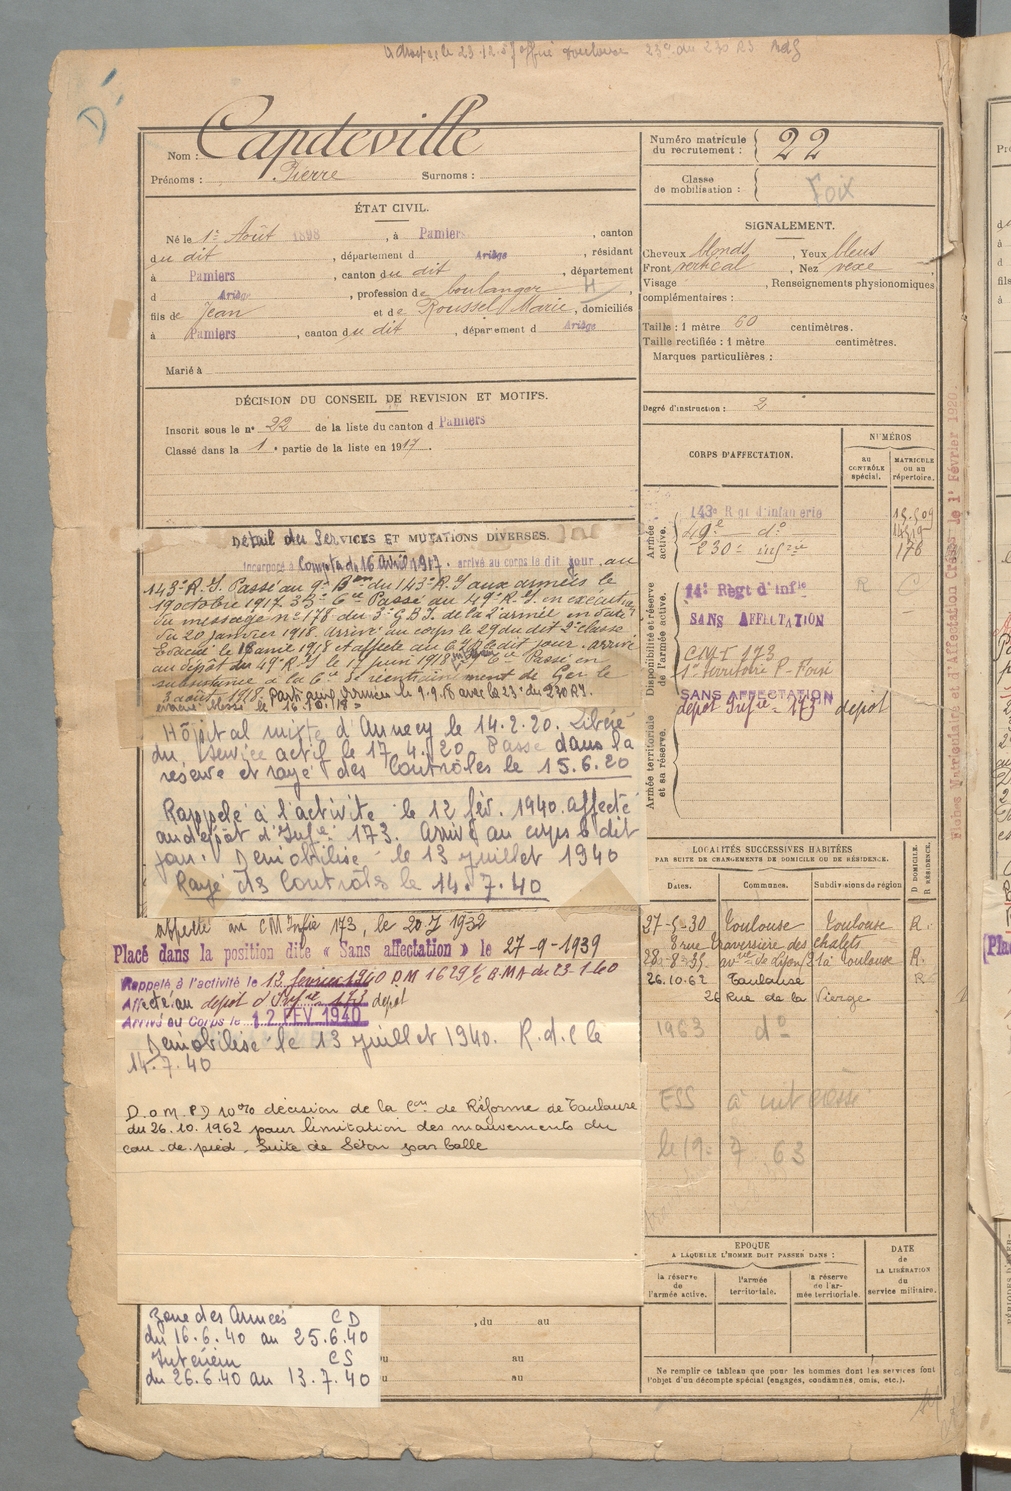 D'
Nom : Capdeville
Prénoms : Pierre Surnoms :
Numéro matricule du recrutement : 22
Classe de mobilisation :
Foix
ÉTAT CIVIL.
Né le 1er Août 1898, à Pamiers, canton
du dit, département d Ariège, résidant
à Pamiers, canton du dit, département
d Ariège, profession de boulanger
fils de Jean et de Roussel Marie, domiciliés
à Pamiers, canton du dit, département d Ariège
Marié à
SIGNALEMENT.
Cheveux blonds, Yeux bleus
Front vertical, Nez vexe
Visage , Renseignements physionomiques
complémentaires :
Taille : 1 mètre 60 centimètres.
Taille rectifiée : 1 mètre centimètres.
Marques particulières :
Degré d'instruction : 2
DÉCISION DU CONSEIL DE REVISION ET MOTIFS.
Inscrit sous le n° 22 de la liste du canton d Pamiers
Classé dans la 1e partie de la liste en 1917.
Détail des SERVICES ET MUTATIONS DIVERSES.
Incorporé à Compter du 16 Avril 1917. arrivé au corps le dit jour, au
143e R.I. Passé au 9e Bon du 143e R.I aux armées le
19 octobre 1917. 33e Cie Passé au 49e R.I. en exécution
du message no 178 du 3e G.D.I. de la 2e armée en date
du 20 janvier 1918. Arrivé au corps le 29 du dit 2e classe
Evacué le 18 avril 1918 et affecté au le dit jour. arrivé
au dépôt du 49e R.I. le 17 juin 1918. Cie Passé en
subsistance à la 6e Cie de réentrainement de Ger le
3 août 1918. Parti aux Armées le 9.9.18 avec la 23e du 230 RI.
évacué blessé le 16.10.18
Hôpital mixte d'Annecy le 14.2.20. Libéré
du service actif le 17.4.20. Passé dans la
réserve et rayé des Contrôles le 15.6.20
Rappelé à l'activité le 12 fév. 1940. affecté
au dépôt d'Infie 173. Arrivé au corps le dit
jour. Démobilisé le 13 juillet 1940
Rayé des Contrôles le 14.7.40
affecté au CM Infie 173, le 20 1932
Placé dans la position dite « Sans affectation » le 27-9-1939
Rappelé à l'activité le 12 février 1940 D.M 1629 B.MA du 23.1.40
Affecté au dépôt d'Infie 173 dépôt
Arrivé au Corps le 12 FEV 1940
Démobilisé le 13 juillet 1940. R.d.c le
14.7.40
D.o M.P.D 10% décision de la Con de Réforme de Toulouse
du 26.10.1962 pour limitation des mouvements du
cou-de-pied. Suite de Séton par balle
Zone des Armées CD
du 16.6.40 au 25.6.40
Intérieur CS
du 26.6.40 au 13.7.40
, du au
du au
du au
CORPS D'AFFECTATION.
NUMÉROS
AU CONTRÔLE spécial.
MATRICULE OU AU répertoire.
Armée active.
143e Rgt d'infanterie
49e do
230e infrie 178
Disponibilité et réserve de l'armée active.
14e Régt d'Infie R C
SANS AFFECTATION
CMI 173
SANS AFFECTATION
dépôt Infie - 173 dépôt
Armée territoriale et sa réserve.
LOCALITÉS SUCCESSIVES HABITÉES
PAR SUITE DE CHANGEMENTS DE DOMICILE OU DE RÉSIDENCE.
Dates. Communes. Subdivisions de région. D DOMICILE. R RÉSIDENCE.
27-5-30 Toulouse Toulouse R.
8 rue Traversière des chalets
28-8-35 de Lyon 21 à Toulouse R.
26.10.62 Toulouse R
26 Rue de la Vierge
1963 do
ESS
le 19. 7 63
EPOQUE
A LAQUELLE L'HOMME DOIT PASSER DANS :
la réserve de l'armée active.
l'armée territoriale.
la réserve de l'armée territoriale.
DATE de LA LIBÉRATION du service militaire.
Ne remplir ce tableau que pour les hommes dont les services font
l'objet d'un décompte spécial (engagés, condamnés, omis, etc.).
Fiches Matriculaire et d'Affectation Créées le 1er Février 1920.